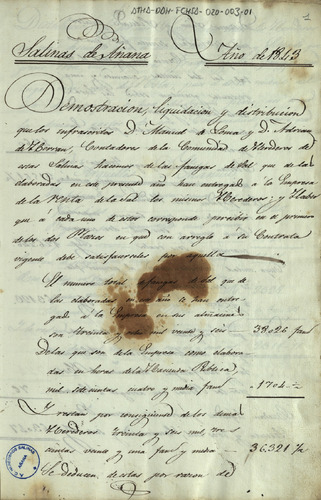 ATHA-DAH-FCHSA-020-003-01
1
Salinas de Añana Año de 1843
Demostracion, liquidacion y distribucion
que los infrascritos D. Manuel de y D.
de Herran, Contadores de la Comunidad de Herederos de
estas Salinas hacemos de las fanegas de Sal que de las
elaboradas en este presente año han entregado à la Empresa
de la Renta de la Sal los mismos Herederos, y Haber
que à cada uno de estos corresponde percibir en el primero
de los dos Plazos en que con arreglo à su Contrata
vigente debe satisfacerles por aquella
El numero total de fanegas de Sal que de
las elaboradas en año se han entre
gado à la Empresa en sus almacenes
son treinta y ocho mil veinte y seis 38.026 fans
De las que son de la Empresa como elabora
das en heras de la Hacienda Publica
mil setecientas cuatro y media fans 1704
Y restan por consiguiente de los demas
Herederos treinta y seis mil, tres
cientas veinte y una fans y media 36.321 1/2
Se deducen de estas por razon de